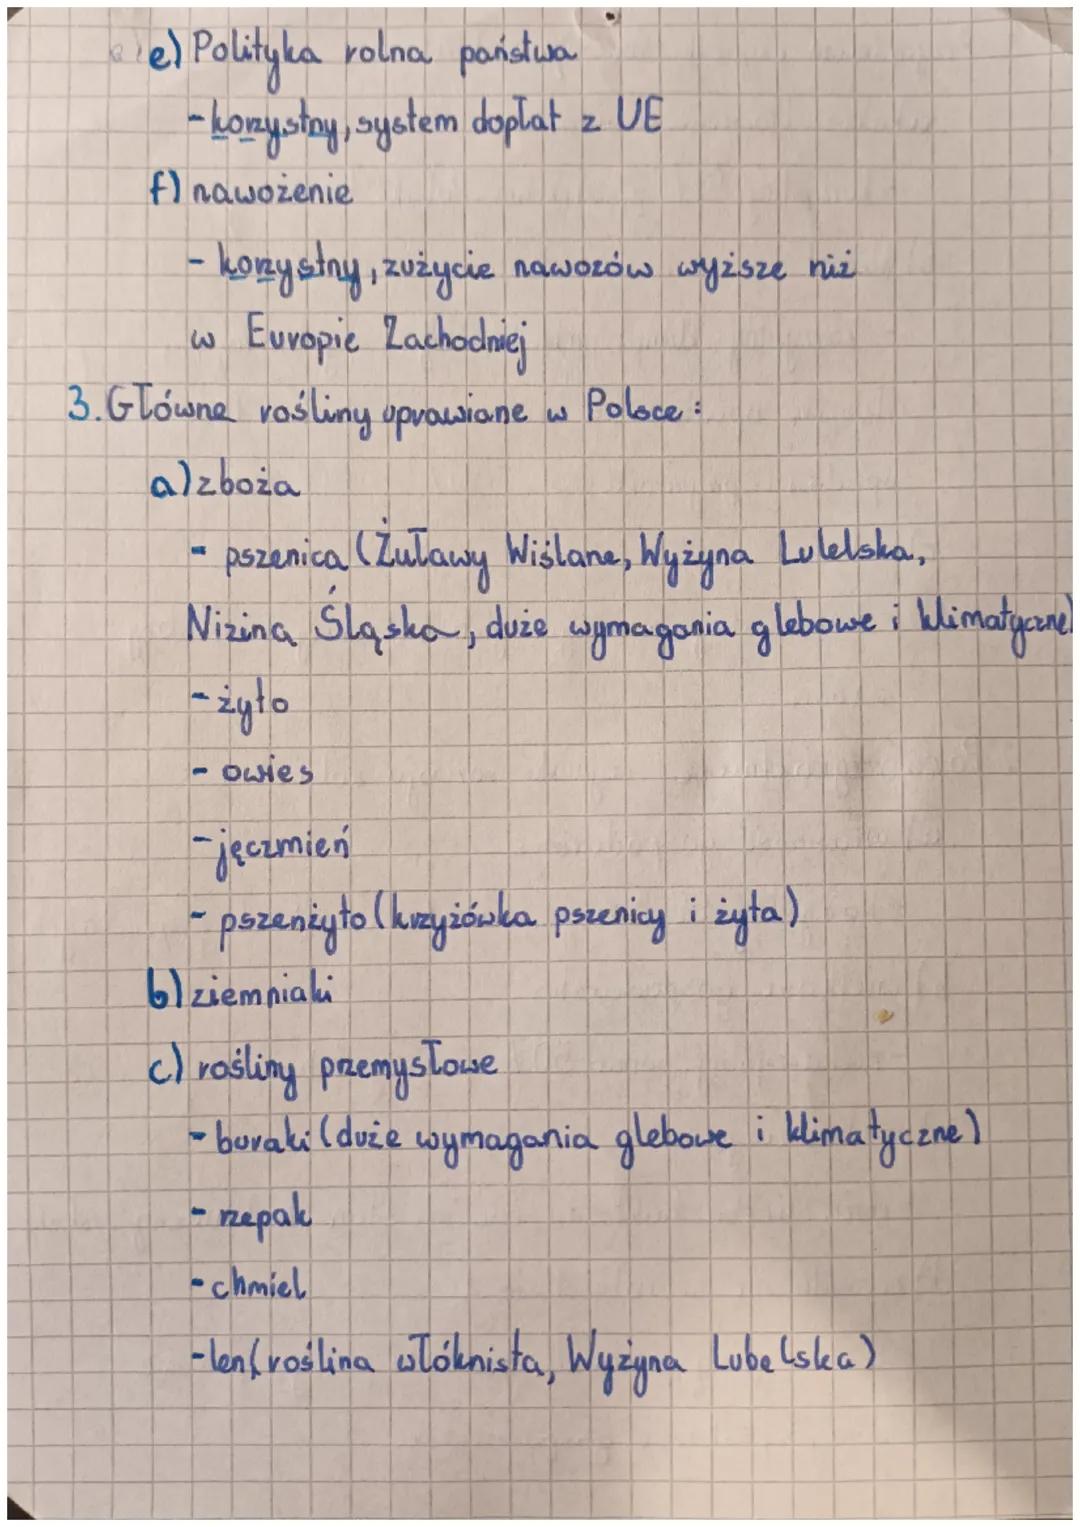 e) Polityka rolna państwa
- korzystny, system dopłat z UE
f) nawożenie
- korzystny, zużycie nawozów wyższe niż
w Europie Zachodniej
3. Główne rośliny uprawiane w Polsce:
a) zboża
- pszenica (Żuławy Wiślane, Wyżyna Lulelska,
Nizina Śląska, duże wymagania glebowe i klimatyczne)
- żyto
- owies
- jęczmień
- pszenżyto (krzyżówka pszenicy i żyta)
b) ziemniaki
c) rośliny przemysłowe
- buraki (duże wymagania glebowe i klimatyczne)
- rzepak
- chmiel
- len (roślina włóknista, Wyżyna Lubelska)